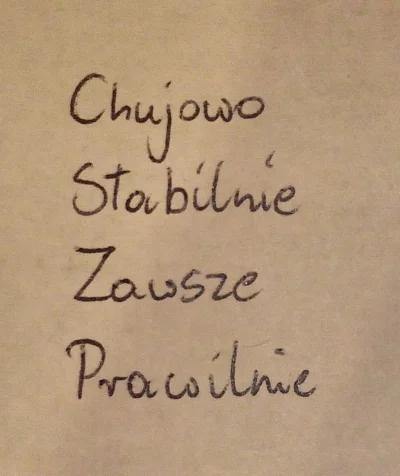 Chujowo
Stabilnie
Zawsze
Prawilnie